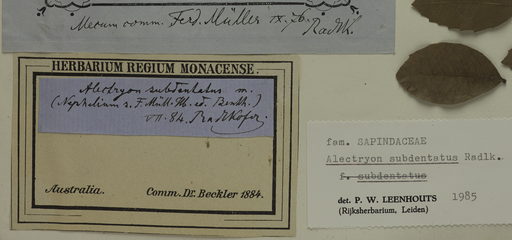 Mecum comm. Ferd. Müller IX. 76.
Radlk.
HERBARIUM REGIUM MONACENSE.
Alectryon subdentatus m.
(Nephelium s. F. Müll. Hb. ed. Benth.)
VII. 84. Radlkofer.
Australia. Comm. Dr. Beckler 1884.
fam. SAPINDACEAE
Alectryon subdentatus Radlk.
f. subdentatus
det. P. W. LEENHOUTS 1985
(Rijksherbarium, Leiden)